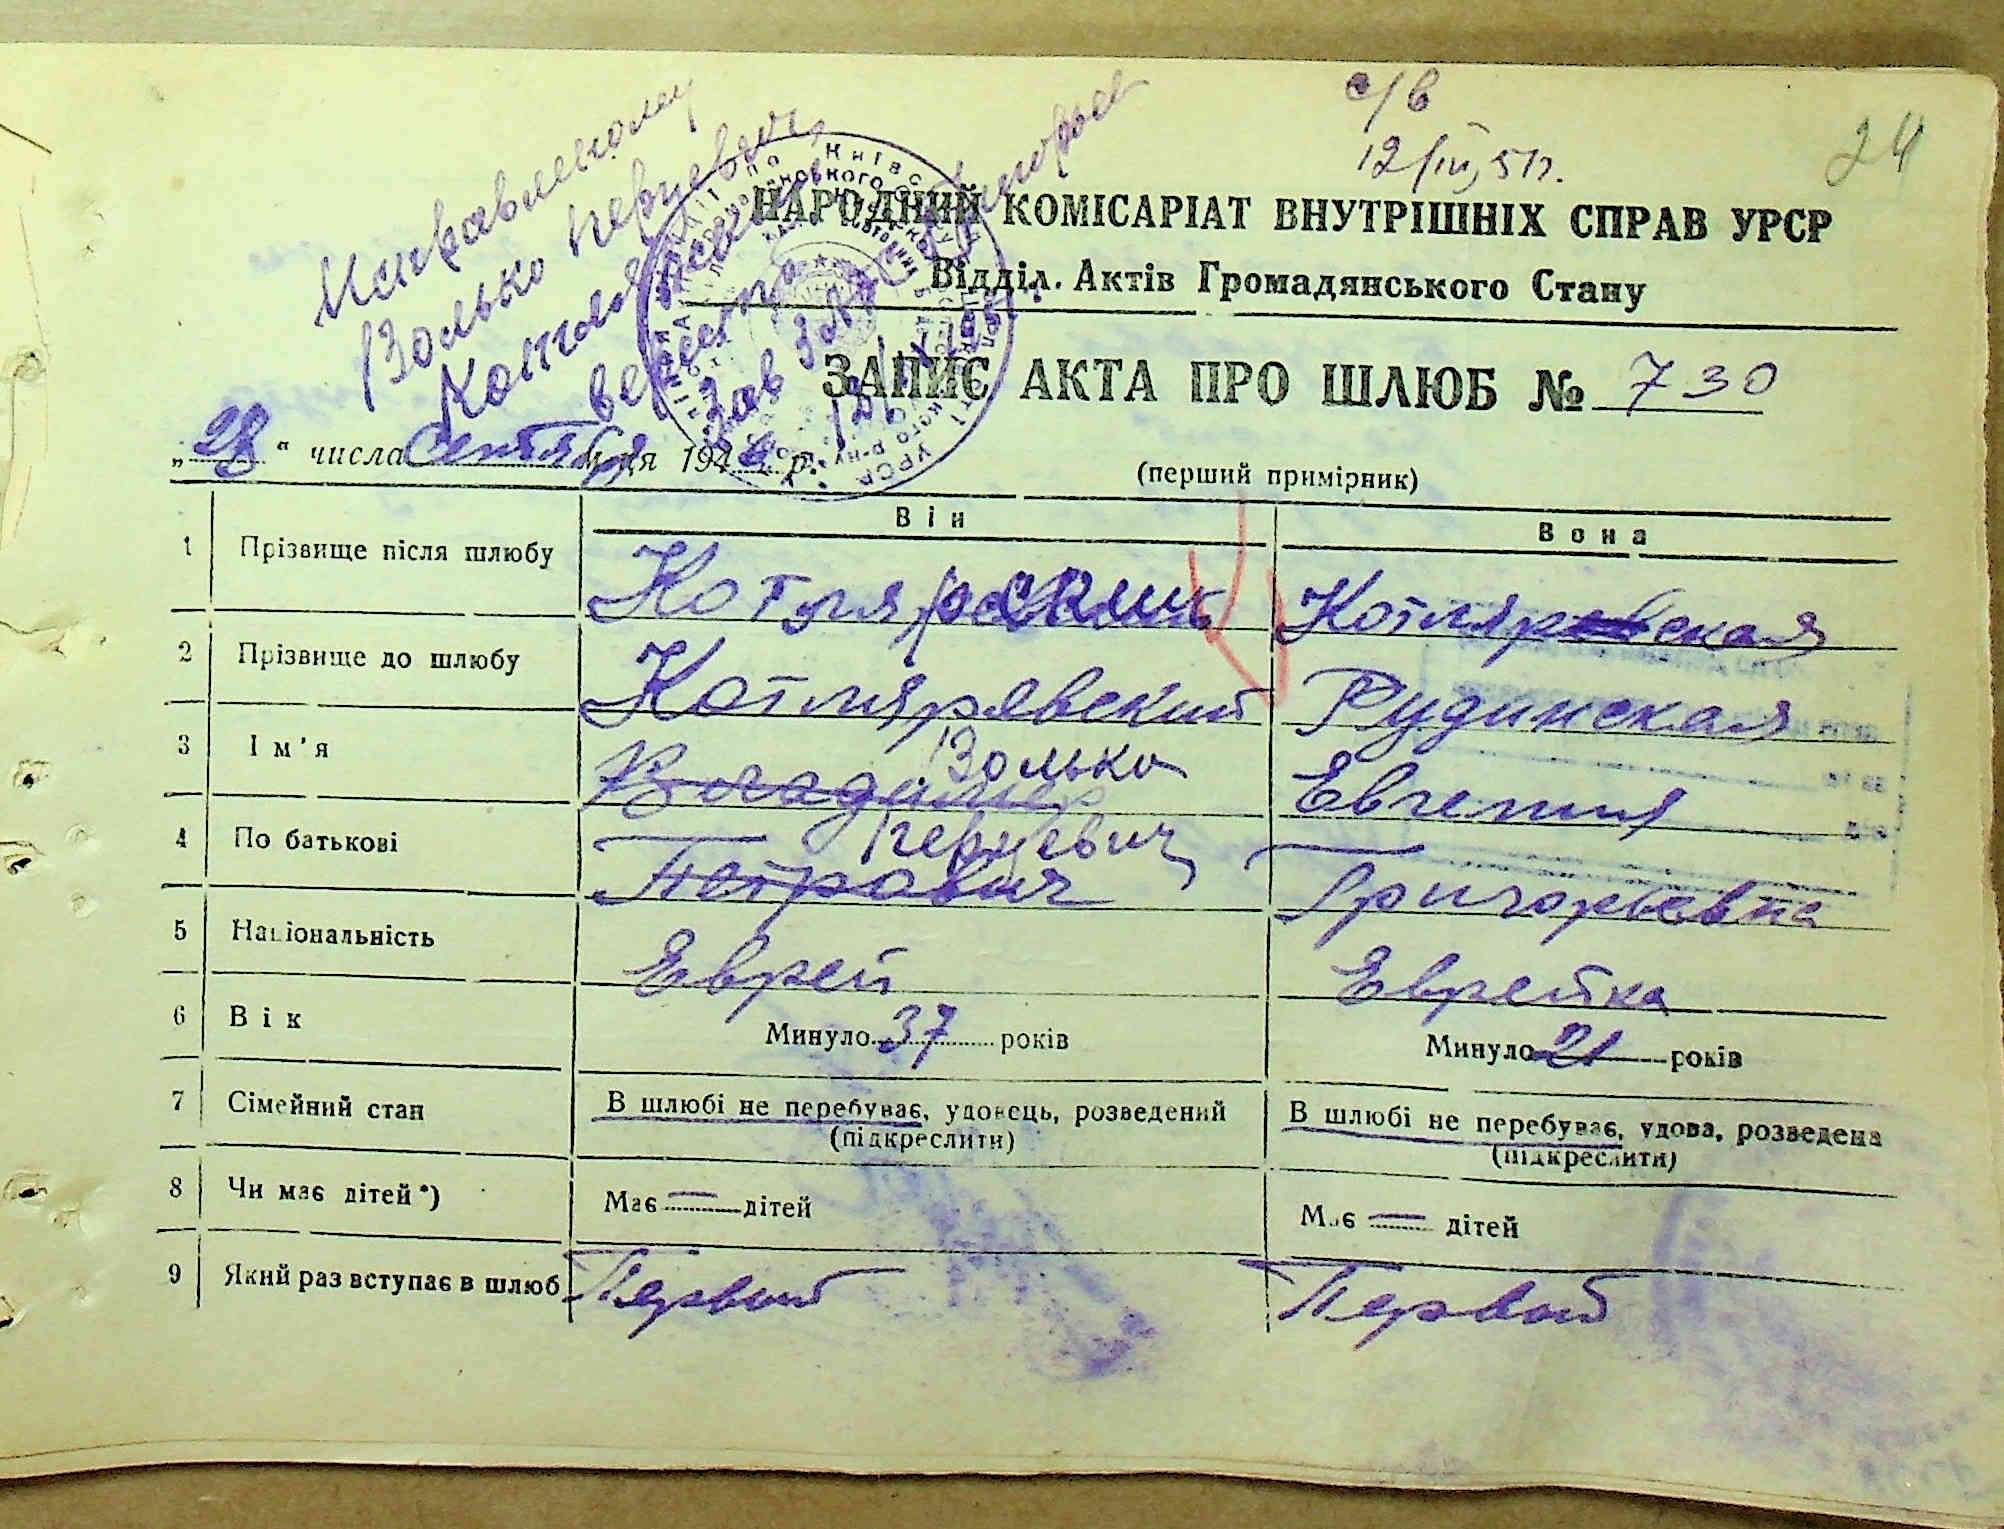 с/в
12/IV, 51г.
24
Исправленному
Золько Герцевич
Котлярский
верить
Зав ЗАГС
НАРОДНИЙ КОМІСАРІАТ ВНУТРІШНІХ СПРАВ УРСР
Відділ Актів Громадянського Стану
ЗАПИС АКТА ПРО ШЛЮБ № 730
„28“ числа сентября м-ця 194 р.
(перший примірник)
Він Вона
1 Прізвище після шлюбу Котлярский Котлярская
2 Прізвище до шлюбу Котляревский Рудинская
3 Ім'я Владимир Золько Евгения
4 По батькові Петрович Герцевич Григорьевна
5 Національність Еврей Еврейка
6 Вік Минуло 37 років Минуло 21 років
7 Сімейний стан В шлюбі не перебуває, удовець, розведений В шлюбі не перебуває, удова, розведена
(підкреслити) (підкреслити)
8 Чи має дітей*) Має — дітей Має — дітей
9 Який раз вступає в шлюб Первый Первый